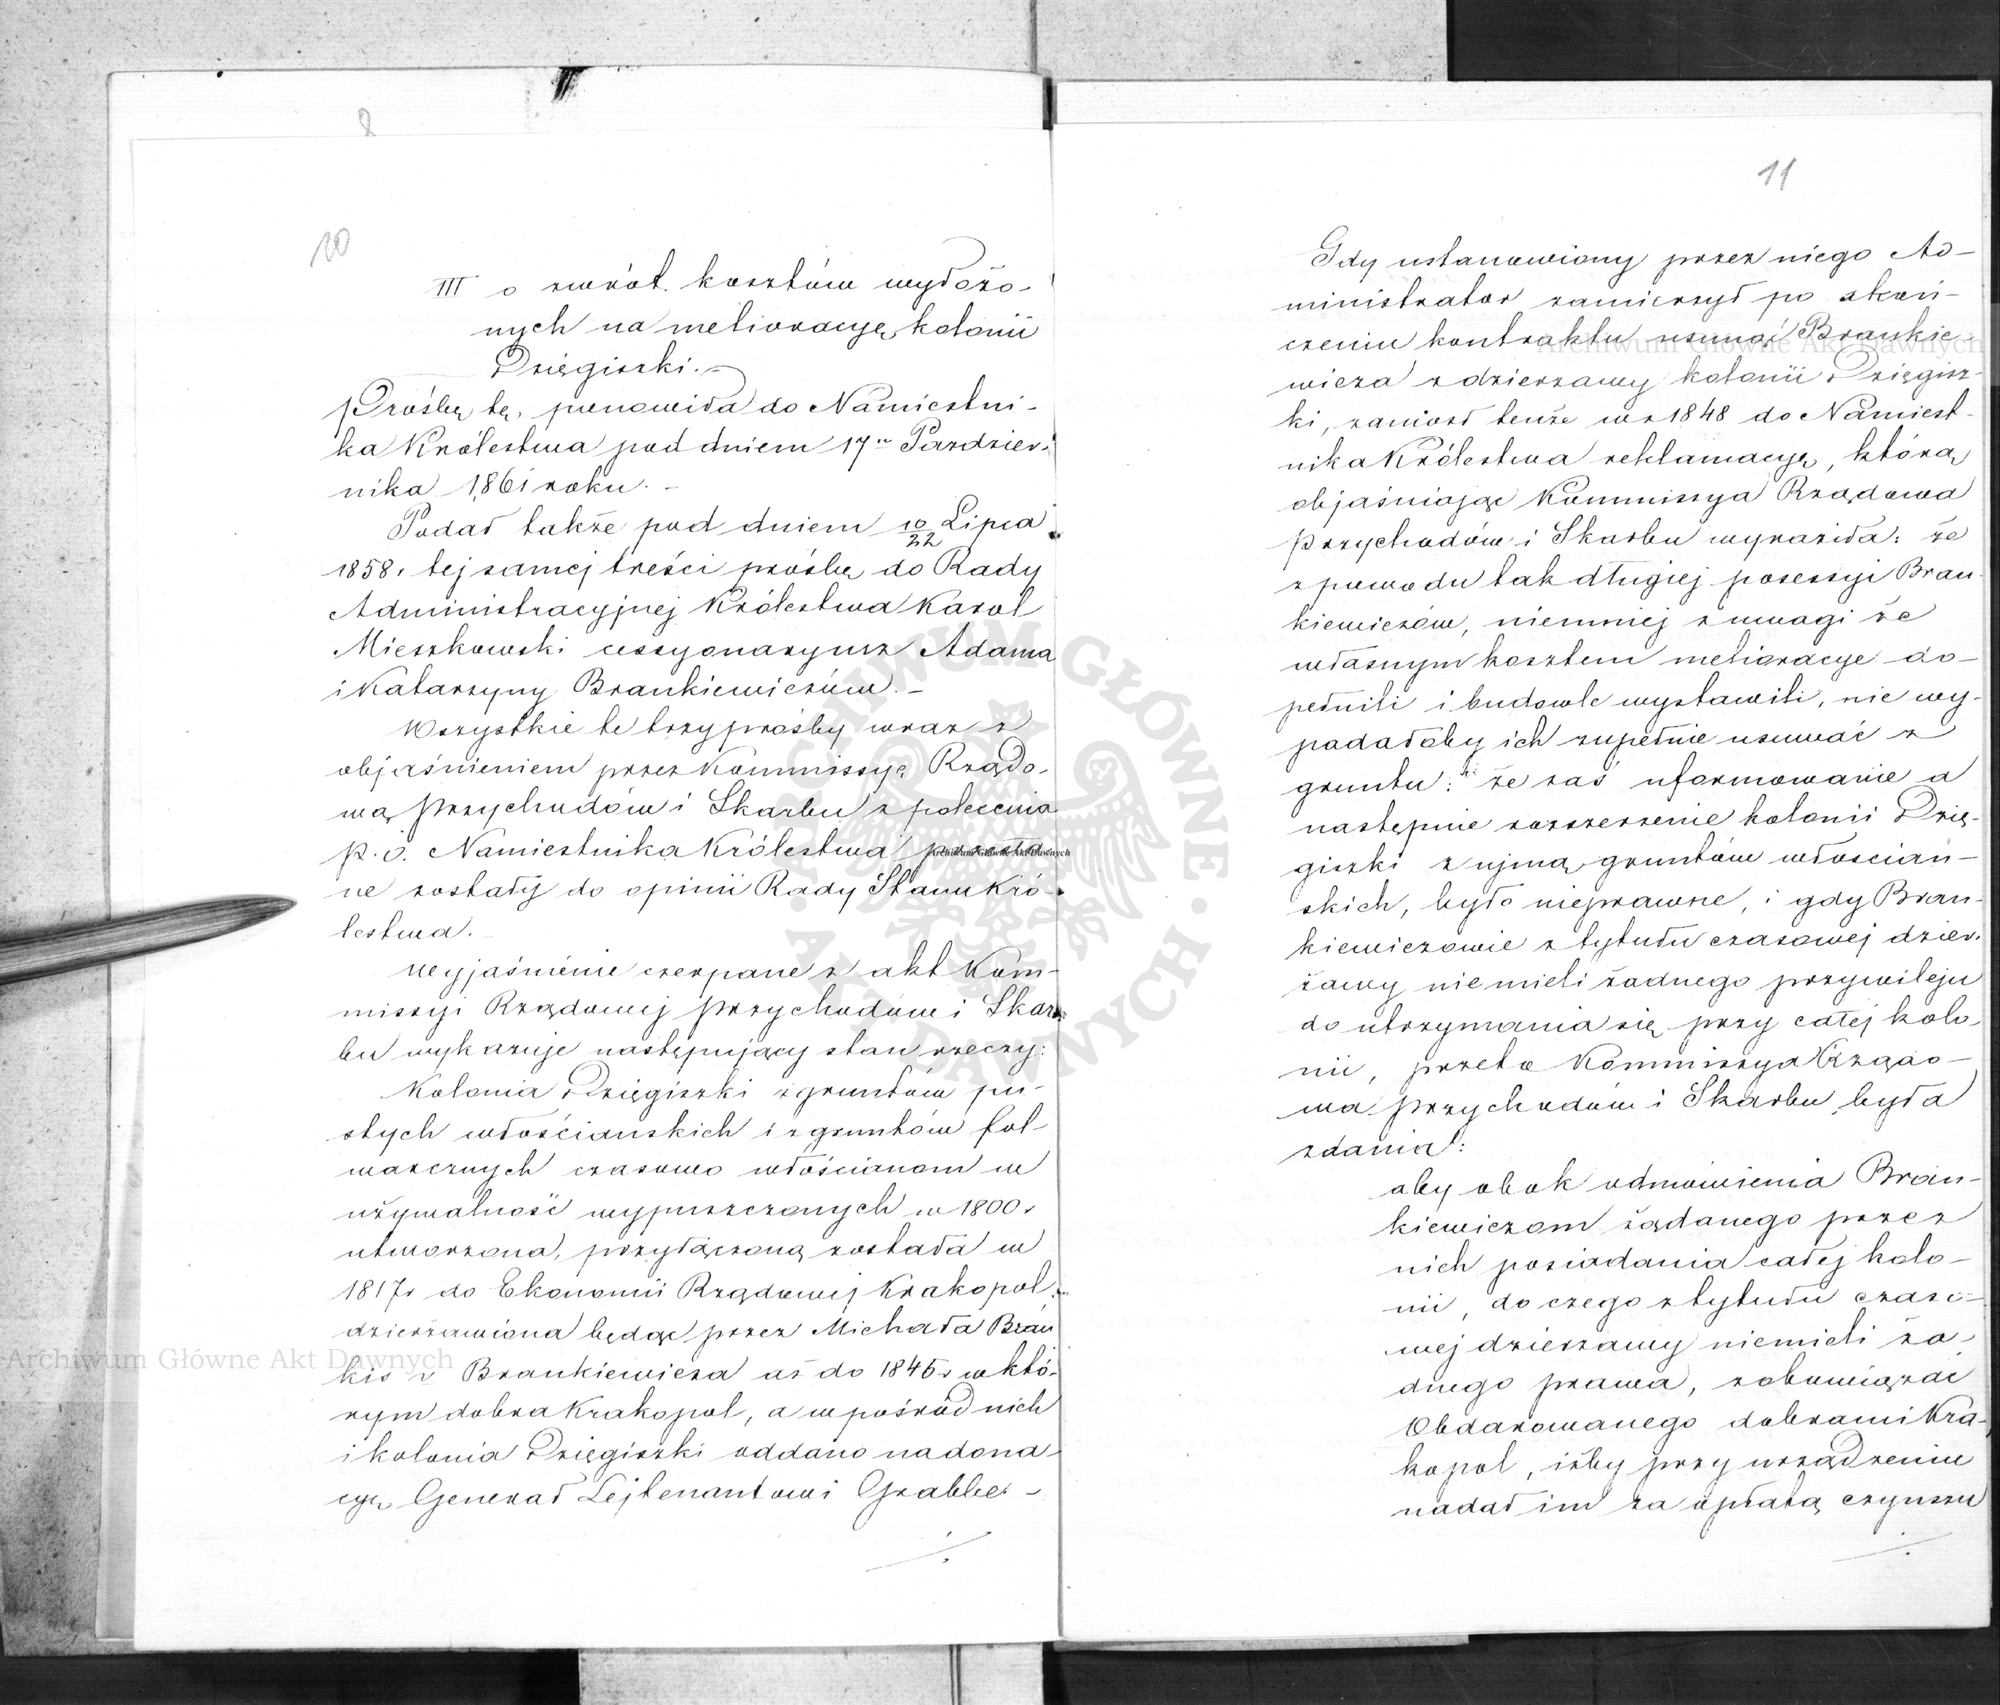 8
10
III o zwrót kosztów wyłożo-
nych na melioracyę kolonii
Dzięgiszki.-
Prośbę tę, ponowiła do Namiestni-
ka Królestwa pod dniem 17 Pazdzier-
nika 1861 roku. -
Podał także pod dniem 10/22 Lipca
1858 r tej samej treści prośbę do Rady
Administracyjnej Królestwa Karol
Mieszkowski cessyonaryusz Adama
i Katarzyny Brankiewiczów. -
Wszystkie te trzy prośby wraz z
objaśnieniem przez Kommissyę Rządo-
wą Przychodów i Skarbu z polecenia
p. o. Namiestnika Królestwa przesła-
ne zostały do opinii Rady Stanu Kró-
lestwa.
Wyjaśnienie czerpane z akt Kom-
missyi Rządowej Przychodów i Skar-
bu wykazuje następujący stan rzeczy:
Kolonia Dzięgiszki z gruntów pu-
stych włościańskich i z gruntów fol-
warcznych czasowo włościanom w
używalność wypuszczonych w 1800 r
utworzona, przyłączoną została w
1817 r do Ekonomii Rządowej Krakopol
dzierżawiona będąc przez Michała Bran
kie Brankiewicza aż do 1845 r w któ-
rym dobra Krakopol, a w pośród nich
i kolonia Dzięgiszki oddano na dona-
cyę Generał Lejtenantowi Grabbe. -
./.
11
Gdy ustanowiony przez niego Ad-
ministrator zamierzył po skoń-
czeniu kontraktu usunąć Brankie-
wicza z dzierżawy kolonii Dzięgisz-
ki, zaniosł tenże w r 1848 do Namiest-
nika Królestwa reklamacyę, którą
objaśniając Kommissya Rządowa
Przychodów i Skarbu wyraziła: że
z powodu tak długiej posessyi Bran-
kiewiczów, niemniej z uwagi że
własnym kosztem melioracye do-
pełnili i budowle wystawili, nie wy-
padałoby ich zupełnie usuwać z
gruntu: że zaś uformowanie a
następnie rozszerzenie kolonii Dzię-
giszki z ujmą gruntów włoscian-
skich, było nieprawne, i gdy Bran-
kiewiczowie z tytułu czasowej dzier-
żawy nie mieli żadnego przywileju
do utrzymania się przy całej kolo-
nii, przeto Kommissya Rządo-
wa Przychodów i Skarbu była
zdania:
aby obok odmówienia Bran-
kiewiczom żądanego przez
nich posiadania całej kolo-
nii, do czego z tytułu czaso-
wej dzierżawy niemieli ża-
dnego prawa, zobowiązać
Obdarowanego dobrami Kra-
kopol, iżby przy urządzeniu
nadał im za opłatą czynszu
./.
Archiwum Główne Akt Dawnych
Archiwum Główne Akt Dawnych
Archiwum Główne Akt Dawnych
ARCHIWUM GŁÓWNE · AKT DAWNYCH ·